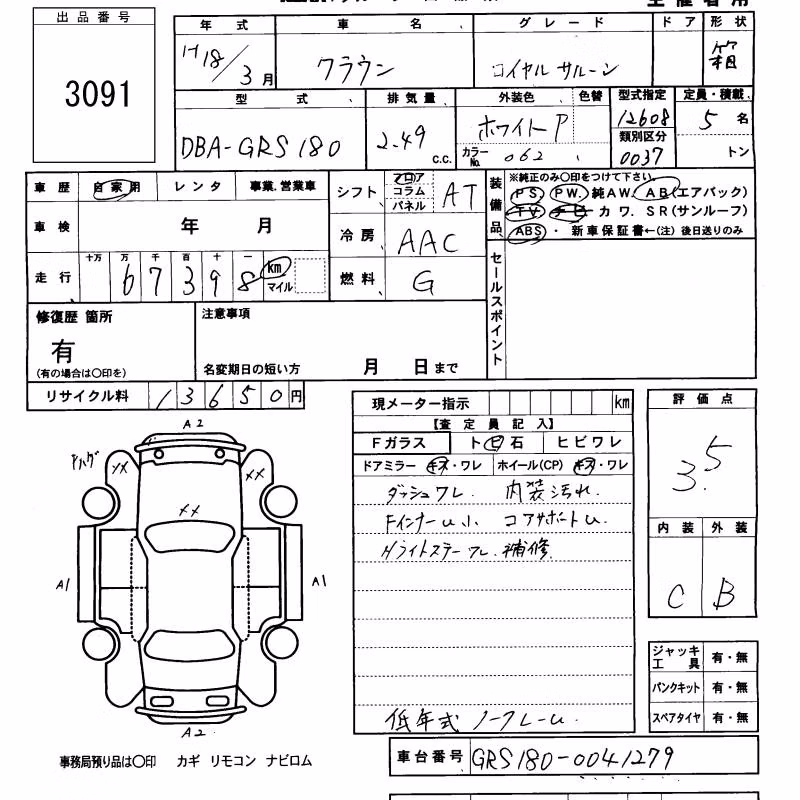 出品番号
3091
年式 車名 グレード ドア 形状
H18/3月 クラウン ロイヤルサルーン 箱
型式 排気量 外装色 色替 型式指定 定員・積載
DBA-GRS180 2.49 c.c. ホワイトP 12608 5名
カラーNo. 062 類別区分 0037 トン
車歴 自家用 レンタ 事業.営業車
シフト フロア コラム パネル AT
装備品
※純正のみ〇印をつけて下さい。
PS PW. 純AW. AB(エアバック)
TV ナビ カワ. SR(サンルーフ)
ABS・ 新車保証書←(注)後日送りのみ
車検 年 月
冷房 AAC
走行 十万 万 千 百 十 一
67398 km マイル
燃料 G
セールスポイント
修復歴 箇所
有
(有の場合は〇印を)
注意事項
名変期日の短い方 月 日まで
リサイクル料 13650円
現メーター指示 km
【査定員記入】
Fガラス ト ビ 石 ヒビワレ
ドアミラー キズ・ワレ ホイール(CP) キズ・ワレ
ダッシュワレ 内装汚れ.
FインナーU小 コアサポートU.
Hライトステーワレ.補修
低年式 ノークレーム
評価点
3.5
内装 外装
C B
A2
アハゲ
XX XX
XX
A1 A1
A2
ジャッキ工具 有・無
パンクキット 有・無
スペアタイヤ 有・無
事務局預り品は〇印 カギ リモコン ナビロム
車台番号 GRS180-0041279